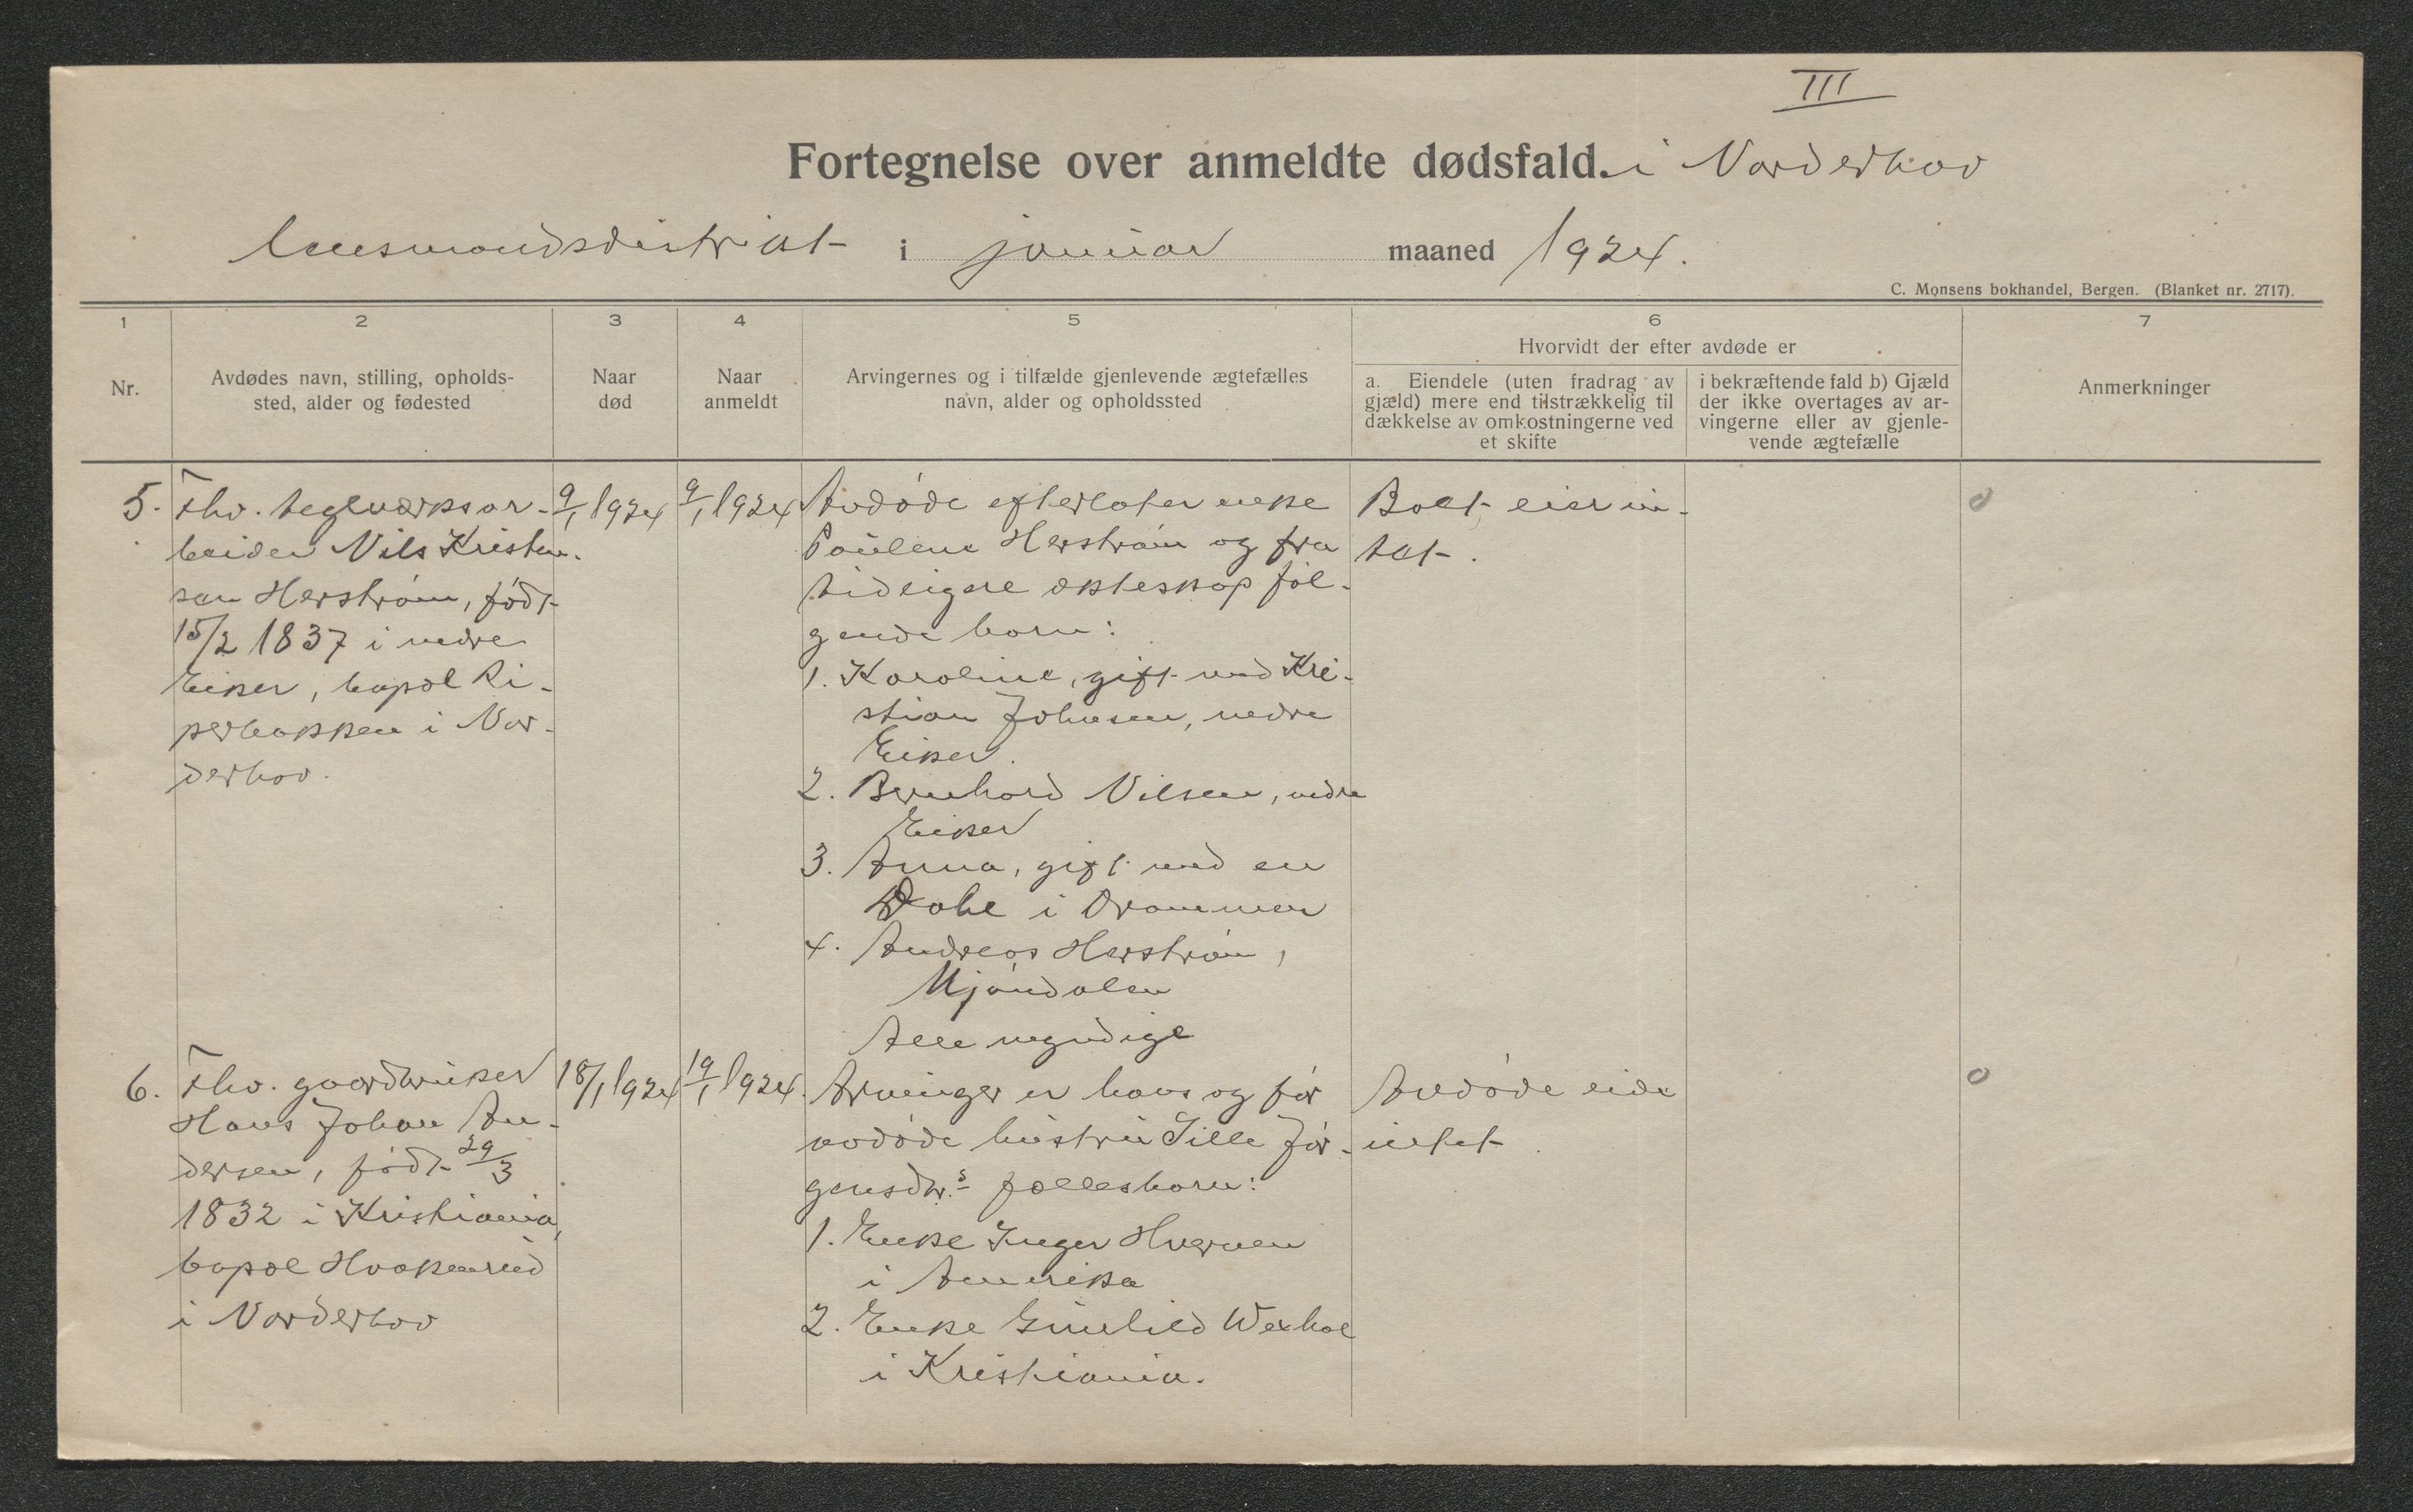 III
Fortegnelse over anmeldte dødsfald. i Norderhov
lensmandsdistrikt i januar maaned 1924.
C. Monsens bokhandel, Bergen. (Blanket nr. 2717).
1 2 3 4 5 6 7
Hvorvidt der efter avdøde er
Nr.
Avdødes navn, stilling, opholds-
sted, alder og fødested
Naar
død
Naar
anmeldt
Arvingernes og i tilfælde gjenlevende ægtefælles
navn, alder og opholdssted
a. Eiendele (uten fradrag av
gjæld) mere end tilstrækkelig til
dækkelse av omkostningerne ved
et skifte
i bekræftende fald b) Gjæld
der ikke overtages av ar-
vingerne eller av gjenle-
vende ægtefælle
Anmerkninger
5.
Fhv. teglverksar-
beider Nils Kristen-
sen Herstrøm, født
15/2 1837 i nedre
Eiker, bopæl Ri-
perbakken i Nor-
derhov.
9/1 1924
9/1 1924
Avdøde efterlater enke
Pauline Herstrøm og fra
tidligere ekteskap føl-
gende barn:
1. Karoline, gift med Kri-
stian Johnsen, nedre
Eiker.
2. Bernhard Nilsen, nedre
Eiker
3. Anna, gift med en
Dahl i Drammen
4. Andreas Herstrøm,
Mjøndalen
Alle myndige
Boet eier in-
tet.
o
6.
Fhv. gaardbruker
Hans Johan An-
dersen, født 29/3
1832 i Kristiania,
bopæl Haakenrud
i Norderhov
18/1 1924
19/1 1924.
Arvinger er hans og før
avdøde hustru Sille Jør-
gensdtr.s fællesbarn:
1. Enke Inger Hvernen
i Amerika
2. Enke Gunhild Wexhal
i Kristiania.
Avdøde eide
intet
o